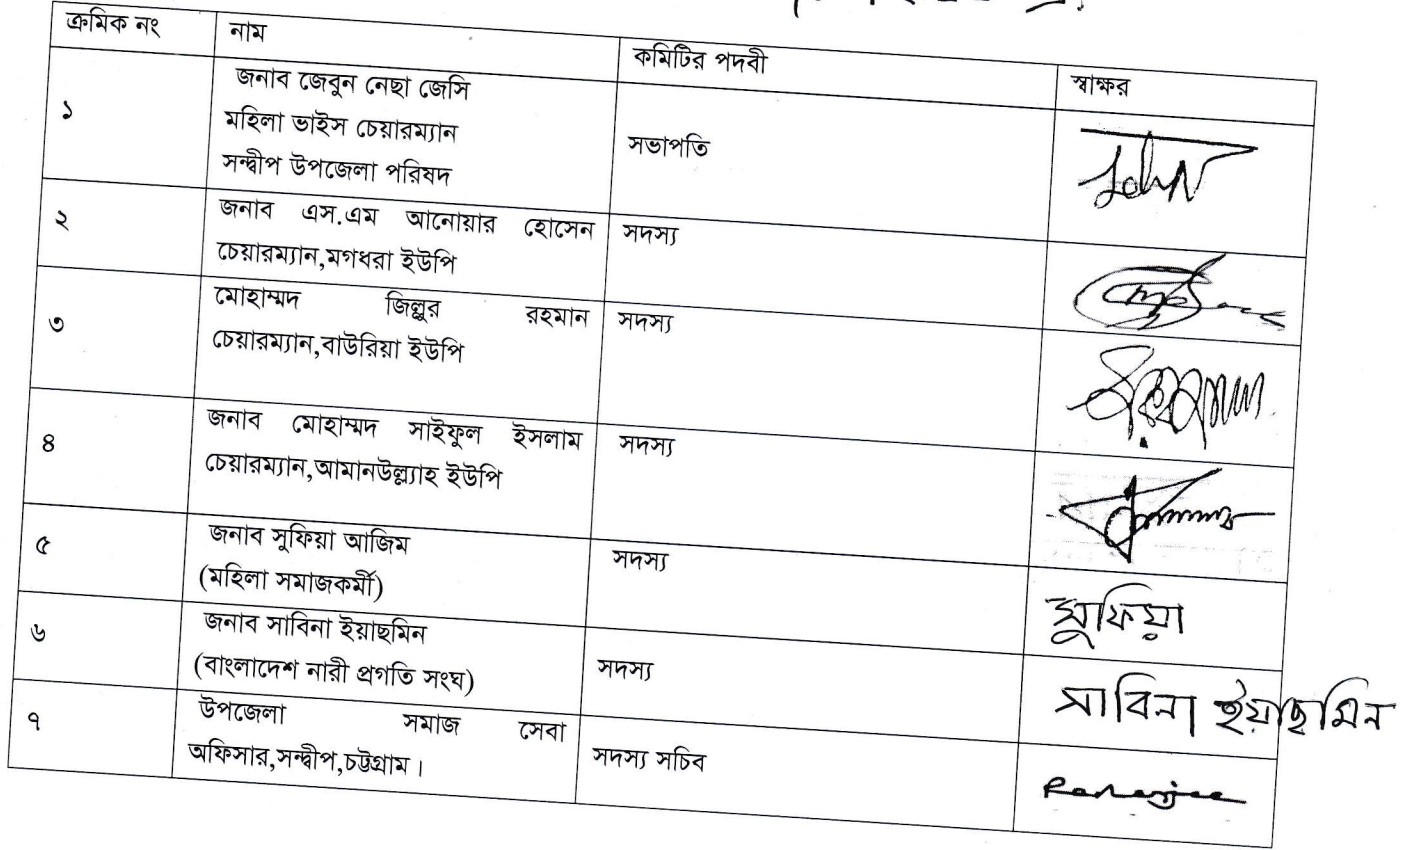 ক্রমিক নং নাম কমিটির পদবী স্বাক্ষর
১ জনাব জেবুন নেছা জেসি
মহিলা ভাইস চেয়ারম্যান সভাপতি
সন্দ্বীপ উপজেলা পরিষদ
২ জনাব এস.এম আনোয়ার হোসেন সদস্য
চেয়ারম্যান,মগধরা ইউপি
৩ মোহাম্মদ জিল্লুর রহমান সদস্য
চেয়ারম্যান,বাউরিয়া ইউপি
৪ জনাব মোহাম্মদ সাইফুল ইসলাম সদস্য
চেয়ারম্যান,আমানউল্ল্যাহ ইউপি
৫ জনাব সুফিয়া আজিম সদস্য
(মহিলা সমাজকর্মী) সুফিয়া
৬ জনাব সাবিনা ইয়াছমিন
(বাংলাদেশ নারী প্রগতি সংঘ) সদস্য সাবিনা ইয়াছমিন
৭ উপজেলা সমাজ সেবা
অফিসার,সন্দ্বীপ,চট্টগ্রাম। সদস্য সচিব